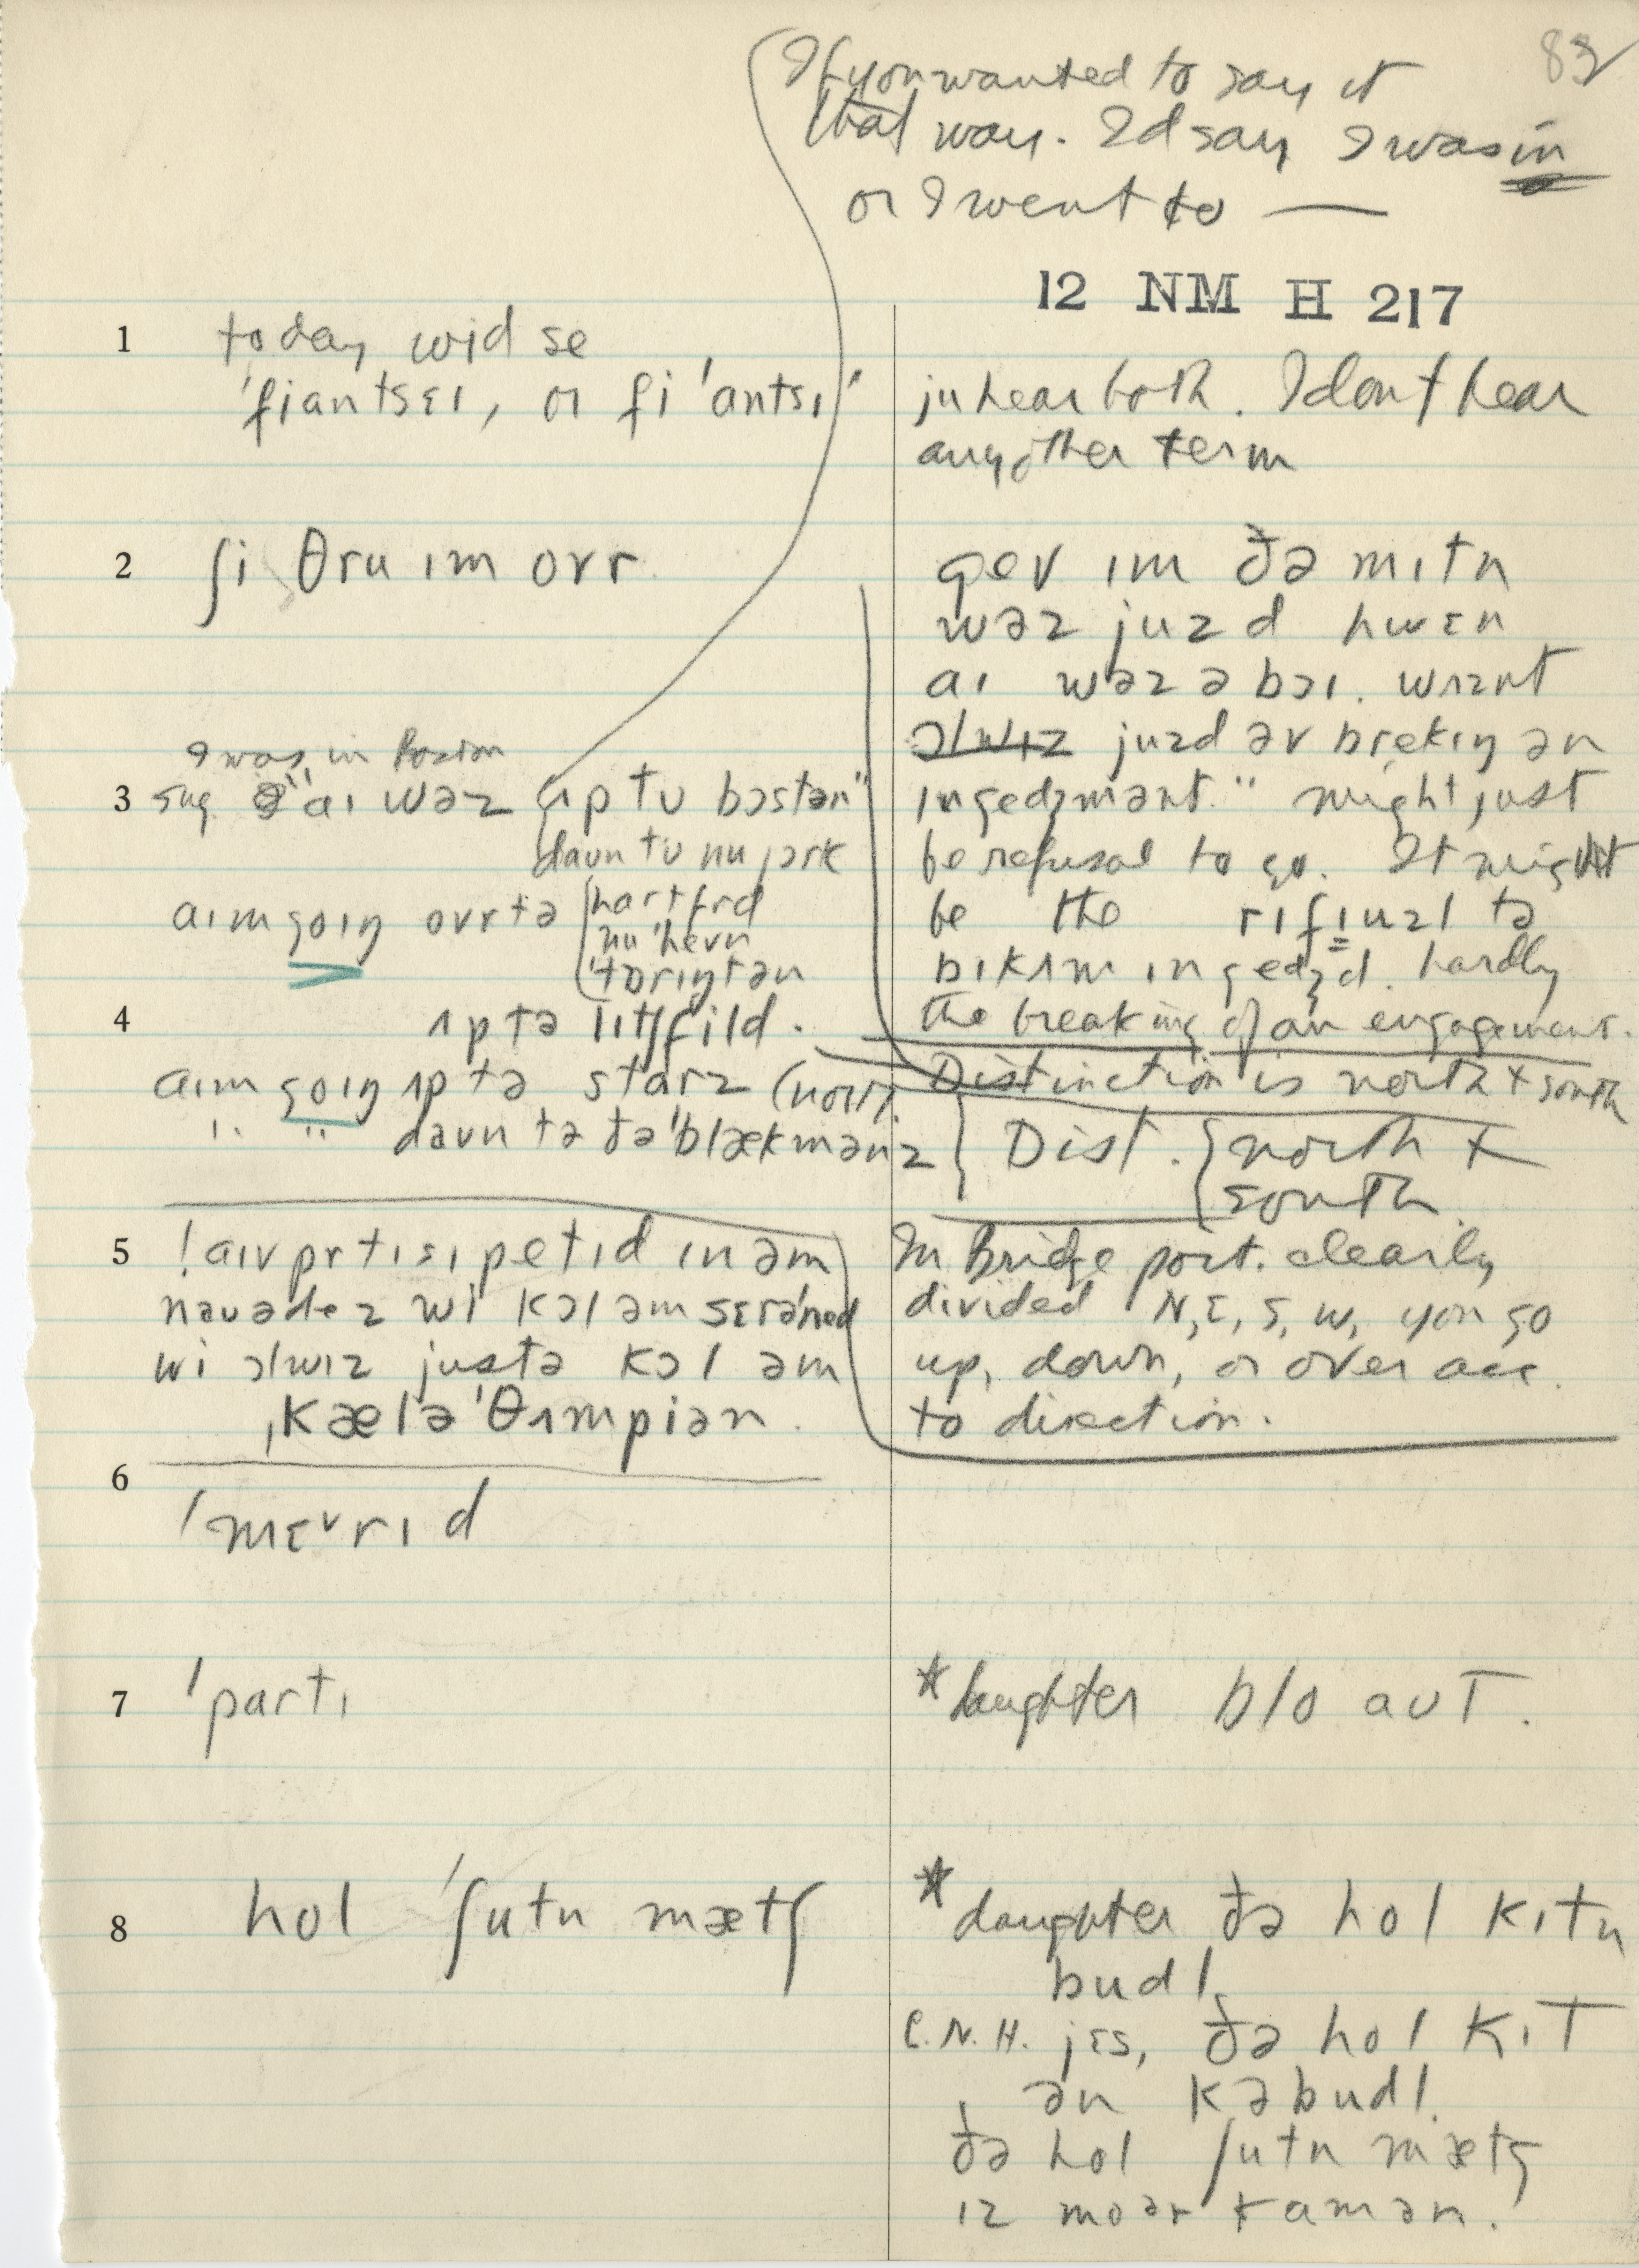 83
If you wanted to say it
that way. I'd say I was in
or I went to —
12 NM H 217
1
today wid se
ˈfiantsɛɪ, or fiˈantsɪ
ju hear both. I don't hear
any other term
2
ʃi θru ɪm ovr
gev ɪm ðə mɪtn
wəz juzd hwɛn
aɪ wəz ə bɔɪ. wʌznt
ɔlwɪz juzd əv brekɪŋ ən
ɪngedʒmənt." might just
be refusal to go. It might
be the rɪfɪuzl tə
bɪkʌm ɪngedʒd. hardly
the breaking of an engagement.
I was in Boston
3
sug. "aɪ wəz ʌp tʊ bɔstən"
daʊn tʊ nu jɔrk
aɪm goɪŋ ovr tə hartfrd
nuˈhevn
ˈtɒrɪŋtən
4
ʌp tə lɪtʃfild.
aɪm goɪŋ ʌp tə starz (north).
" " daʊn tə ðəˈblækmənz
Distinction is north + south
Dist. north +
south
5
! aɪv prtɪsɪpetɪd ɪn əm
naʊədez wi kɔl əm sɛrəned
wi ɔlwɪz justə kɔl əm
ˌkæləˈθʌmpiən.
In Bridgeport. clearly
divided N, E, S, W, you go
up, down, or over acc.
to direction.
6
ˈmɛ˅rɪd
7
ˈpartɪ
*daughter blo aʊt.
8
hol ˈʃutn mætʃ
*daughter ðə hol kɪtn
budl.
C.N.H. jɛs, ðə hol kɪt
ən kəbudl.
ðə hol ʃutn mætʃ
ɪz moər kamən.